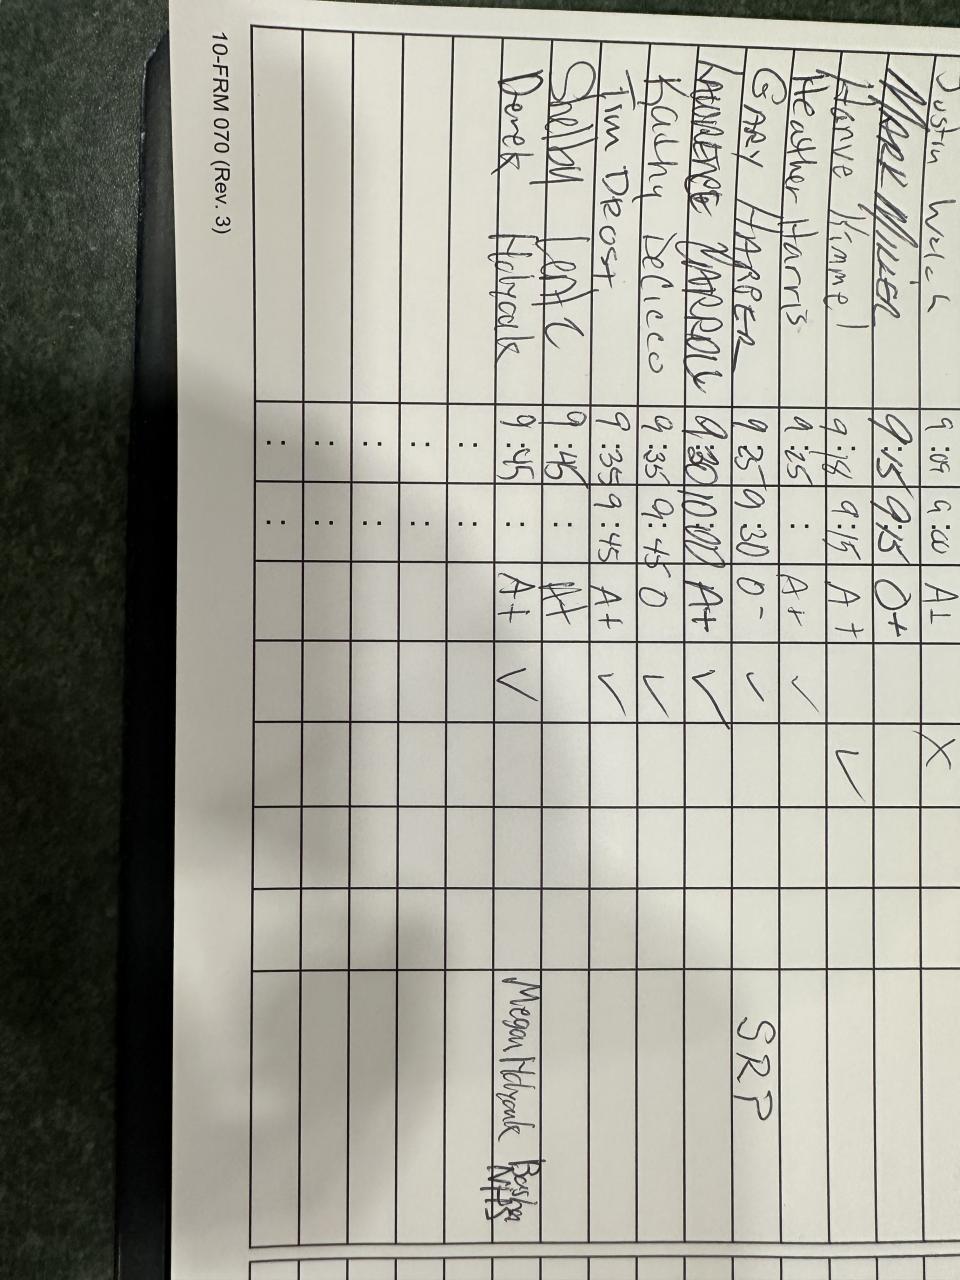 Justin Welch 9:09 9:00 A+ X
MARK MILLER 9:15 9:15 O+
Harive Kimmel 9:18 9:15 A+ ✓
Heather Harris 9:25 : A+ ✓
GARY HARPER 9:25 9:30 O- ✓ SRP
9:30 10:00 A+ ✓
Kathy DeCicco 9:35 9:45 O ✓
Tim DROST 9:35 9:45 A+ ✓
Shelby Lentz 9:45 : A+
Derek 9:45 : A+ ✓ Megan
: :
: :
: :
: :
: :
10-FRM 070 (Rev. 3)